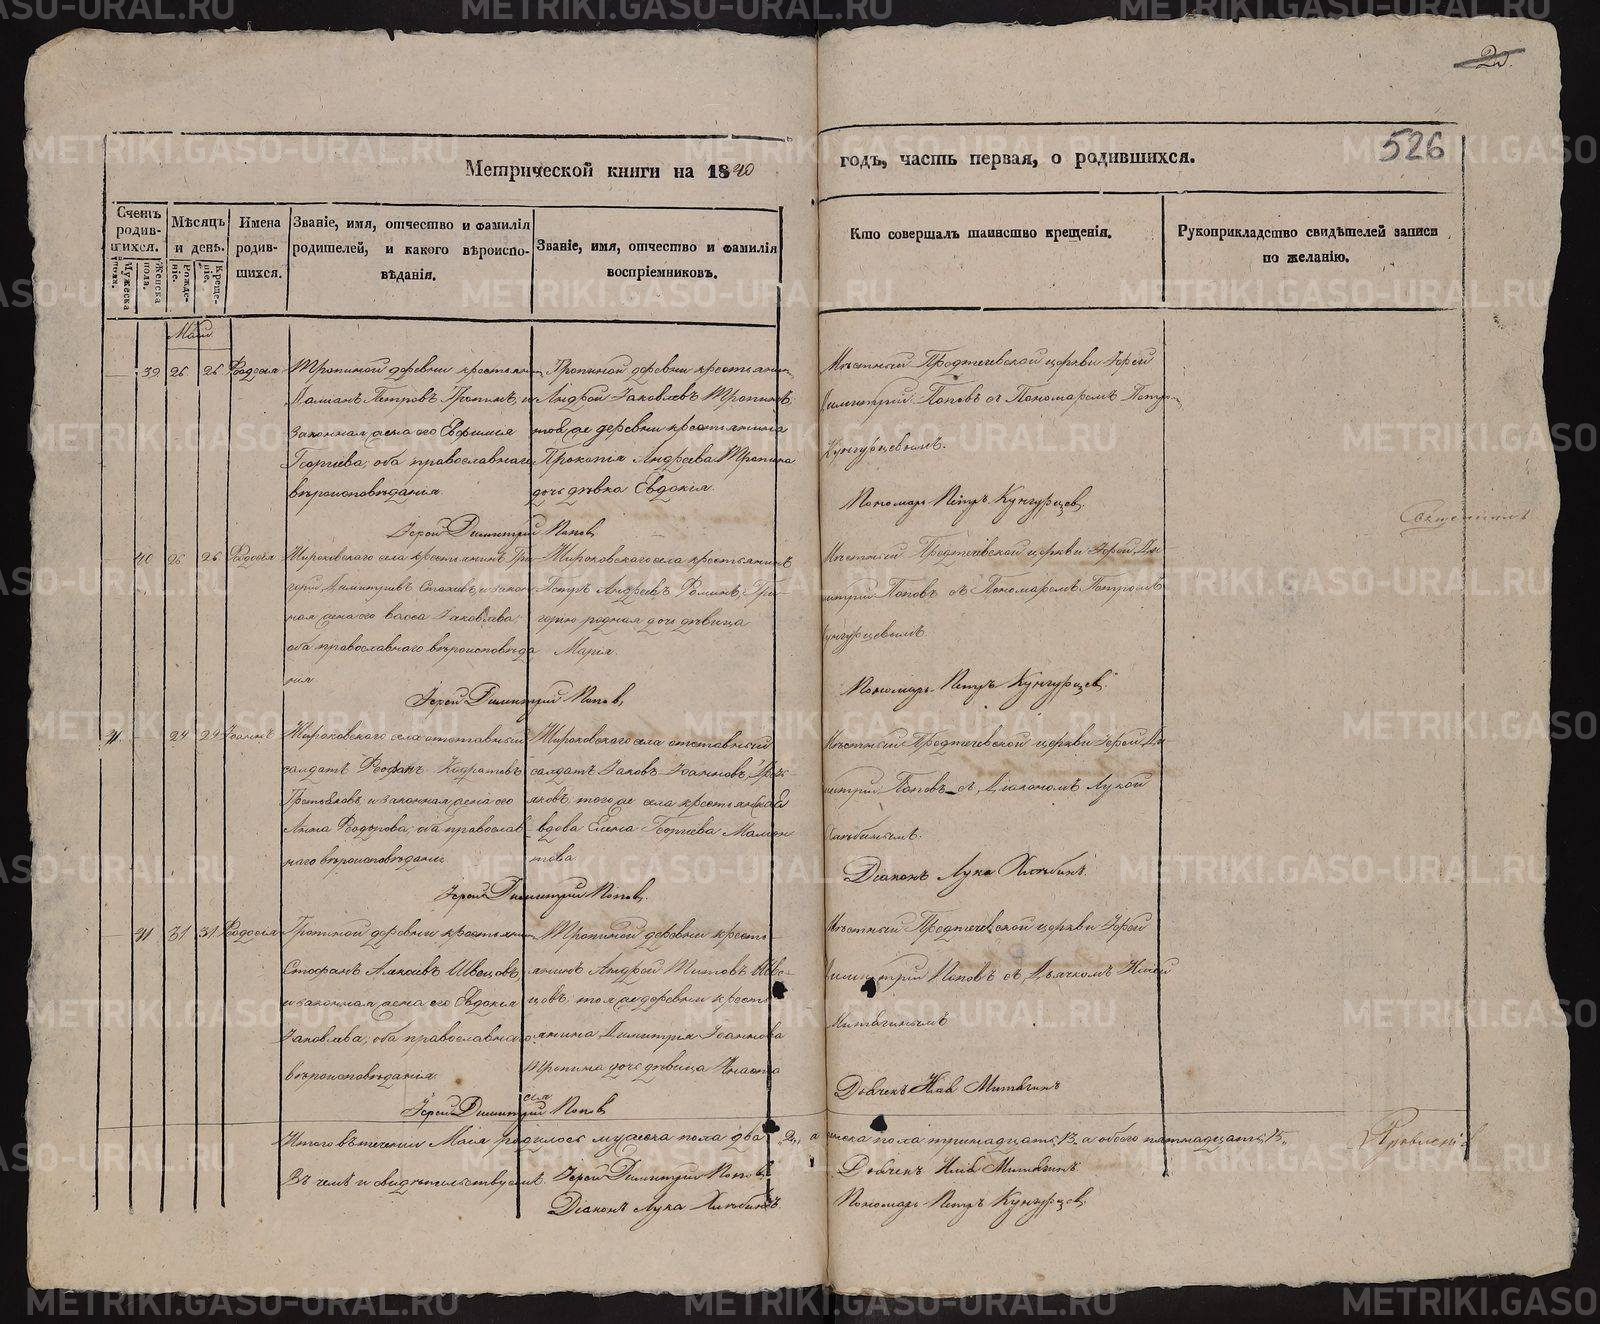 526
Метрической книги на 1840
годъ, часть первая, о родившихся.
Счетъ родившихся.
Мужеска пола.
Женска пола.
Мѣсяцъ и день.
Рожденіе.
Крещеніе.
Имена родившихся.
Званіе, имя, отчество и фамилія родителей, и какого вѣроисповѣданія.
Званіе, имя, отчество и фамилія воспріемниковъ.
Кто совершалъ таинство крещенія.
Рукоприкладство свидѣтелей записи по желанію.
Маій
39 26 26 Ѳеодосія
Тропиной деревни крестьянинъ
Даміанъ Петровъ Тропинъ, и
законная жена его Евфимія
Георгіева, оба православнаго
вѣроисповѣданія
Тропиной деревни крестьянинъ
Андрей Іаковлевъ Тропинъ,
той же деревни крестьянина
Прокопія Андреева Тропина
дочь дѣвка Евдокія.
Мѣстный Предтечевской церкви Іерей
Димитрій Поповъ съ Пономаремъ Петромъ
Кунгурцевымъ.
Пономарь Петръ Кунгурцев
Іерей Димитрий Попов
40 26 26 Ѳеодосія
Широковскаго села крестьянинъ Гри-
горій Димитріевъ
жена его Васса Іаковлева,
оба православнаго вѣроисповѣда
нія
Широковскаго села крестьянинъ
Андреевъ Ѳоминъ, Гри-
горію родная дочь дѣвица
Марія.
Мѣстный Предтечевской церкви Іерей Ди-
митрій Поповъ съ Пономаремъ Петромъ
Кунгурцевымъ
Пономарь Петръ Кунгурцев
Іерей Димитрий Попов
24 24 Іоаннъ
Широковскаго села отставный
солдатъ
и законная жена его
Анна Ѳеодорова, оба православ
наго вѣроисповѣданія
Широковскаго села отставный
солдатъ Іаковъ Іоанновъ
того же села крестьянская
вдова Елена Георгіева Мамон
това
Мѣстный Предтечевской церкви Іерей Ди-
митрій Поповъ съ Діакономъ Лукой
Хлѣбинымъ.
Діаконъ Лука Хлѣбинъ
Іерей Димитрий Попов
41 31 31 Ѳеодосія
Тропиной деревни крестьянинъ
Стефанъ Алексіевъ Швецовъ,
и законная жена его Евдокія
Іаковлева, оба православнаго
вѣроисповѣданія
Тропиной деревни кресть-
янинъ Андрей Титовъ Шве-
цовъ, той же деревни кресть-
янина Димитрія Іоаннова
Тропина дочь дѣвица Анаста
сія
Мѣстный Предтечевской церкви Іерей
Димитрій Поповъ съ Дьячкомъ Иліей
Митягинымъ
Дьячекъ Илія Митягинъ
Іерей Димитрий Попов
Итого въ теченіи Маія родилось мужеска пола два 2, а женска пола тринадцать 13 а обоего пятнадцать 15
Въ чемъ и свидѣтельствуемъ Іерей Димитрий Попов
Дьячекъ Илія Митягинъ
Діаконъ Лука Хлѣбинъ
Пономарь Петръ Кунгурцев
METRIKI.GASO-URAL.RU